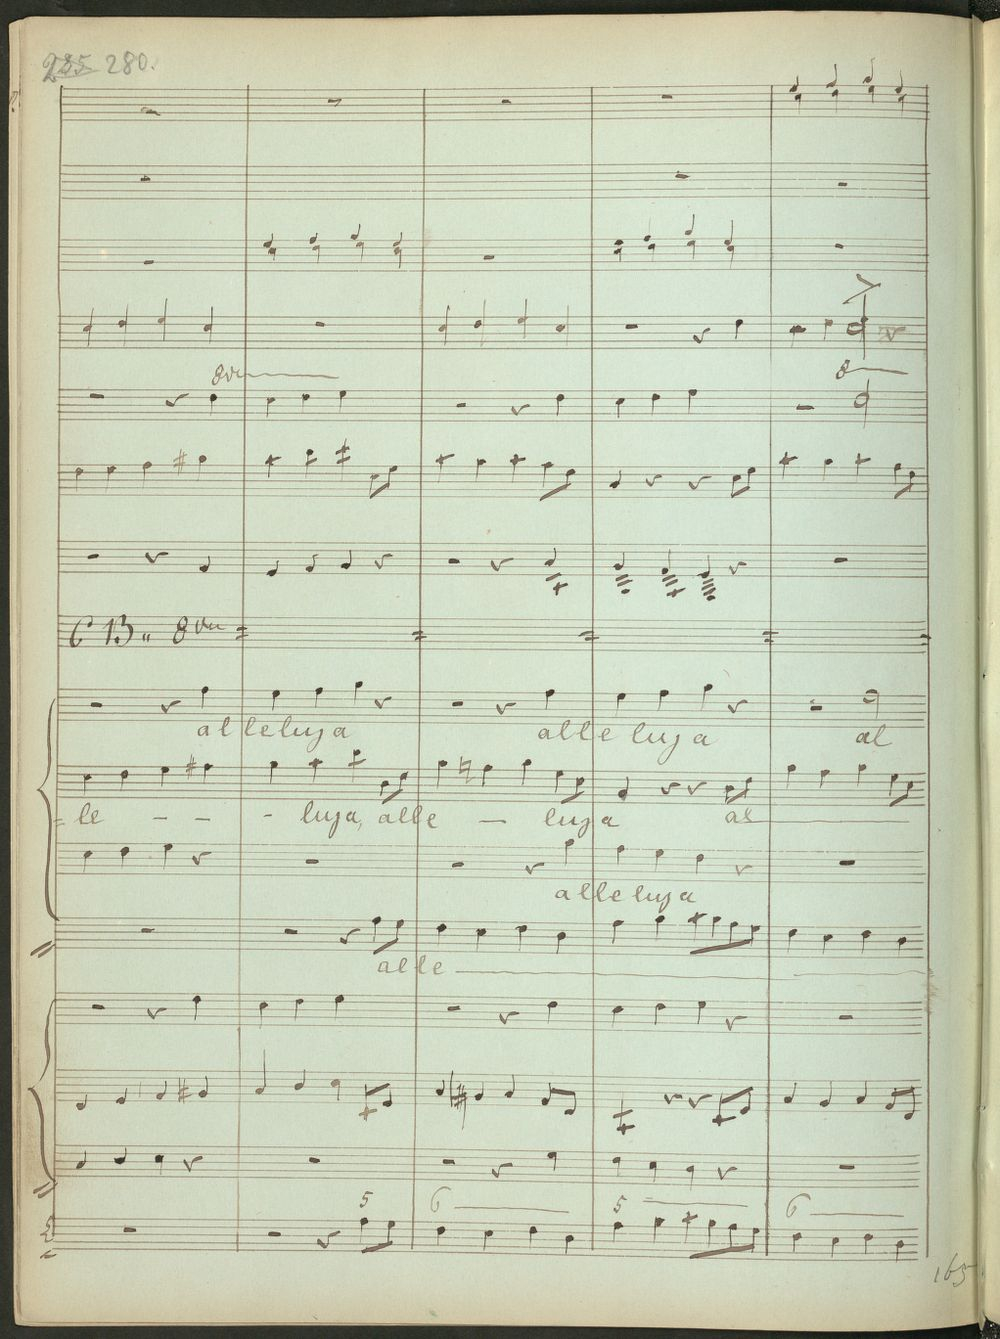 285 280.
8va
8
C B " 8va
alleluja alleluja al
le - - - luja, alle - luja al
alleluja
alle
5 6 5 6
165